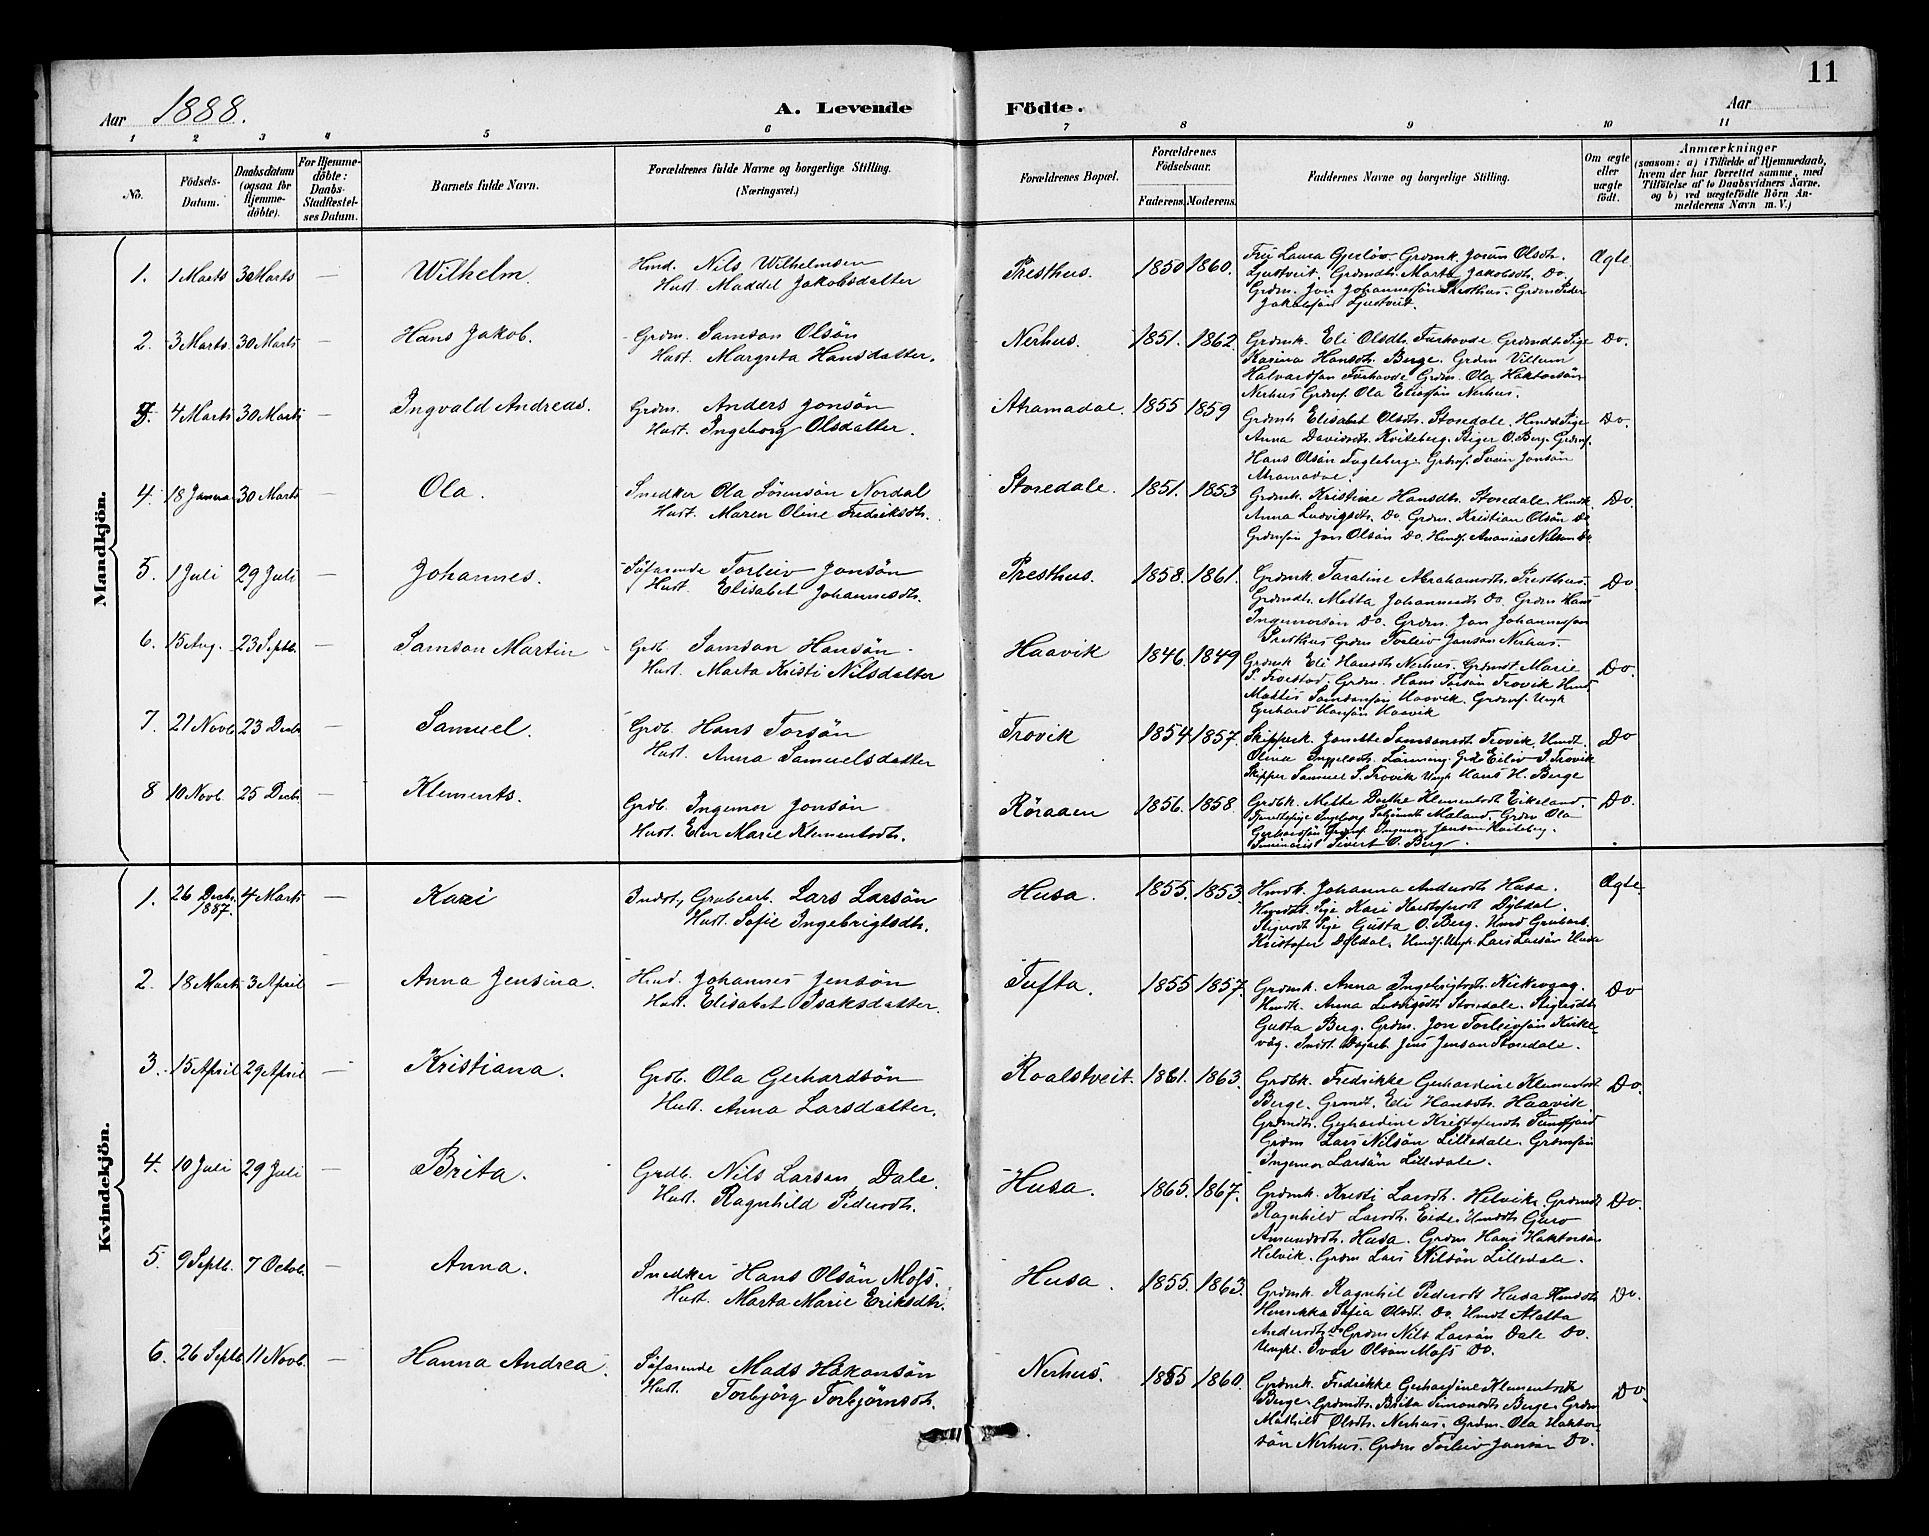 11
Aar 1888. A. Levende Födte. Aar
1 2 3 4 5 6 7 8 9 10 11
No.
Födsels-Datum.
Daabsdatum (ogsaa for Hjemme-döbte).
For Hjemme-döbte: Daabs-Stadfæstel-ses Datum.
Barnets fulde Navn.
Forældrenes fulde Navne og borgerlige Stilling.
(Næringsvei.)
Forældrenes Bopæl.
Forældrenes Födselsaar.
Faderens. Moderens.
Faddernes Navne og borgerlige Stilling.
Om ægte eller uægte födt.
Anmærkninger
(saasom: a) i Tilfælde af Hjemmedaab,
hvem der har forrettet samme, med
Tilföielse af to Daabsvidners Navne.
og b) ved uægtefödte Börn An-
melderens Navn m. V.)
Mandkjön.
1. 1 Marts 30 Marts — Wilhelm.
Hmd. Nils Wilhelmsen
Hust. Maddel Jakobsdatter
Presthus. 1850 1860.
Fru Laura Gjerløv. Grdmk. Josun Olsdt.
Ljustveit. Grdmdt. Marta Jakobsdt. Do.
Grdm. Jon Johannessön Presthus. Grdm Peder
Jakobsön Ljustveit.
Ægte.
2. 3 Marts. 30 Marts — Hans Jakob.
Grdm. Samson Olsön
Hust. Margreta Hansdatter.
Nerhus. 1851. 1862.
Grdmk. Eli Olsdt. Furhovde Grdmdt. Pige
Karina Hansdt. Berge. Grdm Villum
Halvardsön Furhovde Grdm. Ola Haktorsön
Nerhus Grdmf. Ola Eliasön Nerhus.
Do.
3. 4 Marts 30 Marts — Ingvald Andreas.
Grdm. Anders Jonsön
Hust. Ingeborg Olsdatter.
Aramadal. 1855 1859
Grdmk Elisabet Olsdt. Storedale. Hmdt Pige
Anna Davidsdt. Kviteberg. Stiger O. Berg. Grdmf.
Hans Olsön Fugleberg. Grdmf. Svein Jonsön
Aramadal.
Do.
4. 18 Janua 30 Marts — Ola.
Snedker Ola Sörensön Nordal
Hust. Maren Oline Fredriksdt.
Storedale. 1851. 1853
Grdmk. Kristine Hansdt. Storedale. Hmdk.
Anna Ludvigsdt. Do. Grdm. Kristian Olsön Do
Grdmsön Jon Olsön Do. Hmdf. Ananias Nilsen Do.
Do.
5. 1 Juli 29 Juli — Johannes.
Söfarende Torleiv Jonsön
Hust. Elisabet Johannesdt.
Presthus. 1858. 1861.
Grdmk. Taraline Abrahamsdt. Presthus.
Grdmdt. Metta Johannesdt. Do. Grdm Hans
Ingemorsön Do. Grdm. Jon Johannesson
Presthus Grdm Torleiv Jonson Nerhus.
Do
6. 15 Aug. 23 Septb. — Samson Martin
Grdb. Samson Hansön
Hust. Marta Kristi Nilsdatter
Haavik 1846. 1849
Grdmk Eli Hansdt Nerhus. Grdmdt Marie
Grdm. Hans Torsön Trovik Hmd.
Mattis Samsonsön Haavik. Grdmf. Ungk
Gerhard Hansön Haavik
Do.
7. 21 Novb 23 Decb. — Samuel.
Grdb. Hans Torsön
Hust. Anna Samuelsdatter
Trovik 1854 1857.
Skipperk. Jonette Samsonsdt Trovik. Hmdt.
Olina Grdb Eiliv J. Trovik
Skipper Samuel S. Trovik Ungk Hans H. Berge
Do
8 10 Novb. 25 Decb. — Klements.
Grdb. Ingemor Jonsön
Hust. Elen Marie Klementsdt.
Röraaen 1856. 1858.
Grdbk. Mette Dorthe Klementsdt Eikeland.
Ingeborg Maland. Grdm Ola
Gerhardsön Grdmf Ingemor Jonsön Kviteberg.
Seminarist Sivert O. Berg.
Do.
Kvindekjön.
1. 26 Decb. 1887. 4 Marts — Kari
Indst. Grubearb. Lars Larsön
Hust. Sofie Ingebrigtsdt.
Husa. 1855. 1853.
Hmdk. Johanna Andersdt Husa.
Pige Kari Kristofersdt Dybdal.
Stigersdt Pige Gusta O. Berg. Hmd Grubearb.
Kristofer Dybdal. Hmdf. Ungk. Lars Larsön Husa
Ægte.
2. 18 Marts 3 April — Anna Jensina.
Hmd. Johannes Jensön
Hust. Elisabet Isaksdatter.
Tufta. 1855 1857.
Grdmk. Anna Ingebrigtsdt. Kirkevaag.
Hmdk. Anna Ludvigsdt. Storedale. Stigersdt.
Gusta Berg. Grdm. Jon Torleivsön Kirke-
vaag. Indst. Dagarb. Jens Jenson Storedale.
Do
3. 15 April 29 April — Kristiana.
Grdb. Ola Gerhardsön
Hust. Anna Larsdatter.
Roalstveit. 1861. 1863.
Grdbk. Fredrikke Gerhardine Klementsdt
Berge. Grdmdt. Eli Hansdt. Haavik
Grdmdt. Gerhardine Kristofersdt Sundfjord
Grdm Lars Nilsön Lilledale. Grdmsön
Ingemor Larsön Lilledale.
Do.
4. 10 Juli 29 Juli — Brita.
Grdb. Nils Larsen Dale.
Hust. Ragnhild Pedersdt.
Husa. 1865. 1867.
Grdmk. Kristi Larsdt. Helvik. Grdmdt
Ragnhild Larsdt. Eide. Hmdt Guro
Amundsdt. Husa. Grdm Hans Haktorsön
Helvik. Grdm Lars Nilsön Lilledale.
Do.
5. 9 Septb. 7 Octob. — Anna.
Snedker Hans Olsön Moss.
Hust. Marta Marie Eriksdt.
Husa. 1855. 1863.
Grdmk. Ragnhil Pedersdt Husa Hmdt
Henrikka Sofia Olsdt. Do. Hmdt Matta
Andersdt. Do Grdm Nils Larsön Dale Do.
Ungk. Ivar Olsön Moss Do.
Do.
6. 26 Septb. 11 Novb. — Hanna Andrea.
Söfarende Mads Håkonsön
Hust. Torbjörg Torbjörnsdt.
Nerhus. 1855 1860.
Grdmk. Fredrikke Gerhardine Klementsdt
Berge. Grdmdt. Brita Simonsdt Berge. Grdm
Mathild Olsdt. Nerhus. Grdm. Ola Haktor-
sön Nerhus. Grdm Torleiv Jonsön Do.
Do.